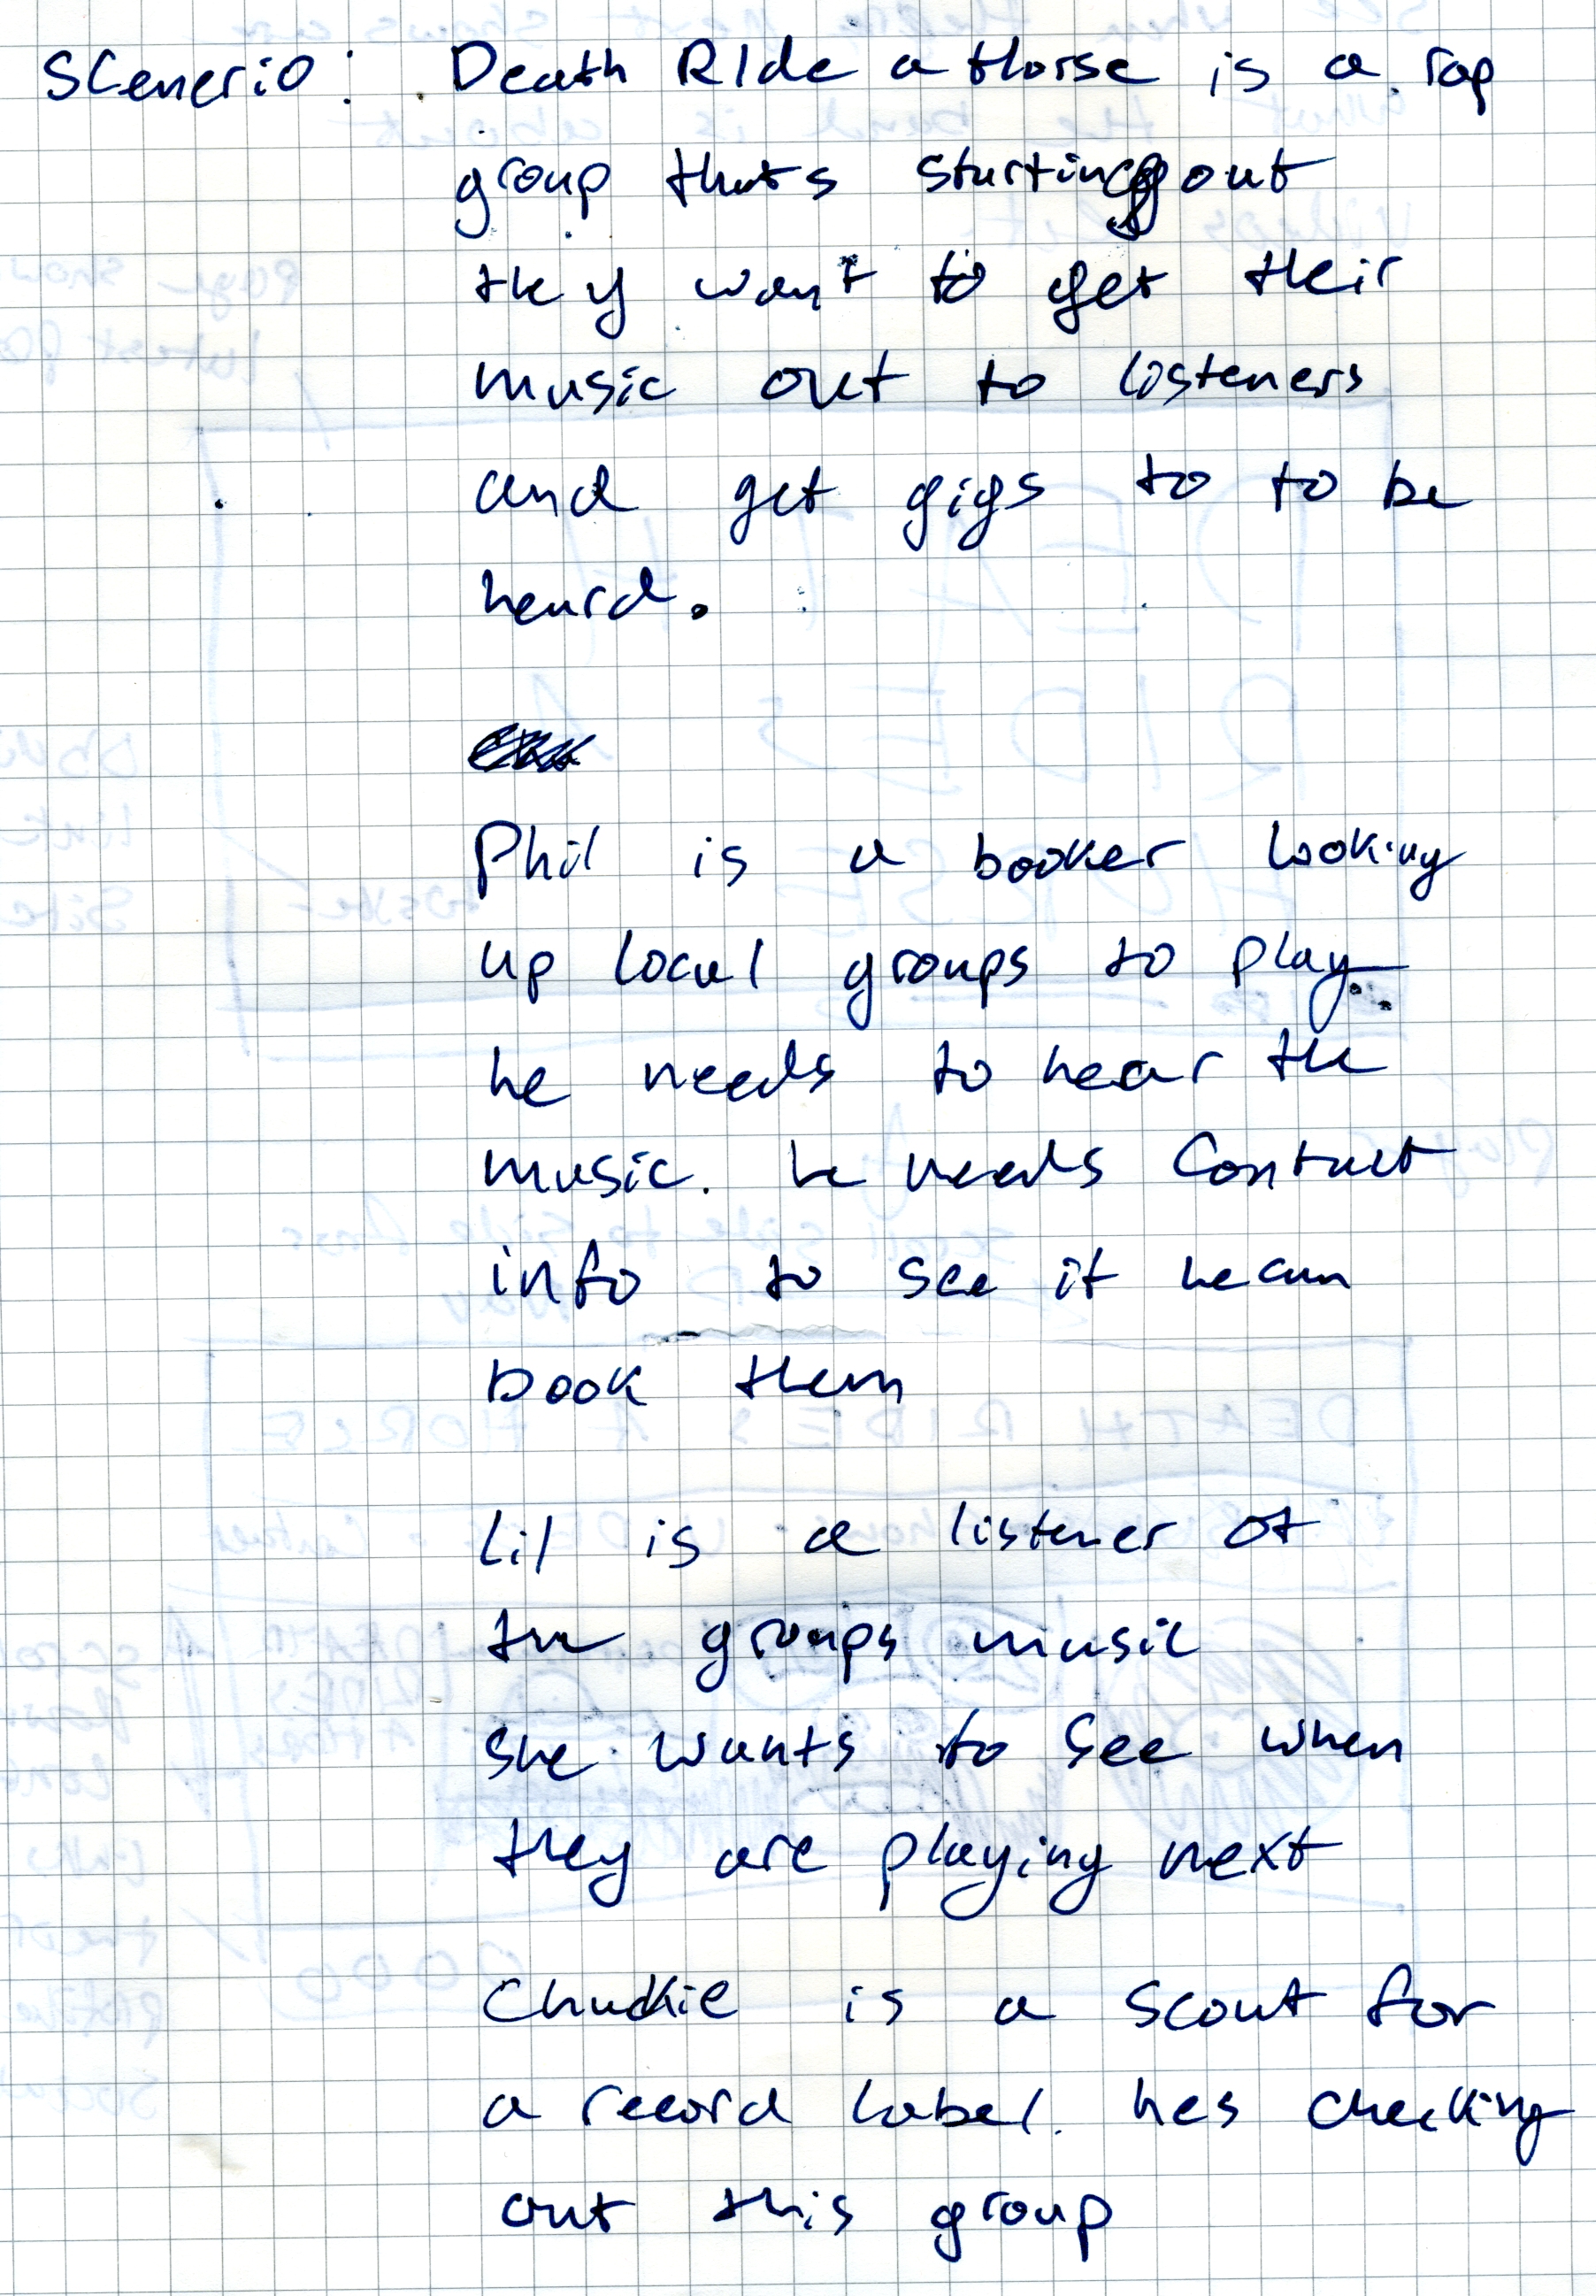 SCenerio: Death RIde a Horse is a rap
group thats starting out
they want to get their
music out to listeners
and get gigs to to be
heard.
Phil is a booker looking
up local groups to play.
he needs to hear the
music. he needs Contact
info to see if he can
book them
Lil is a listener of
the groups music
she wants to see when
they are playing next
Chuckie is a scout for
a record label. hes checking
out this group